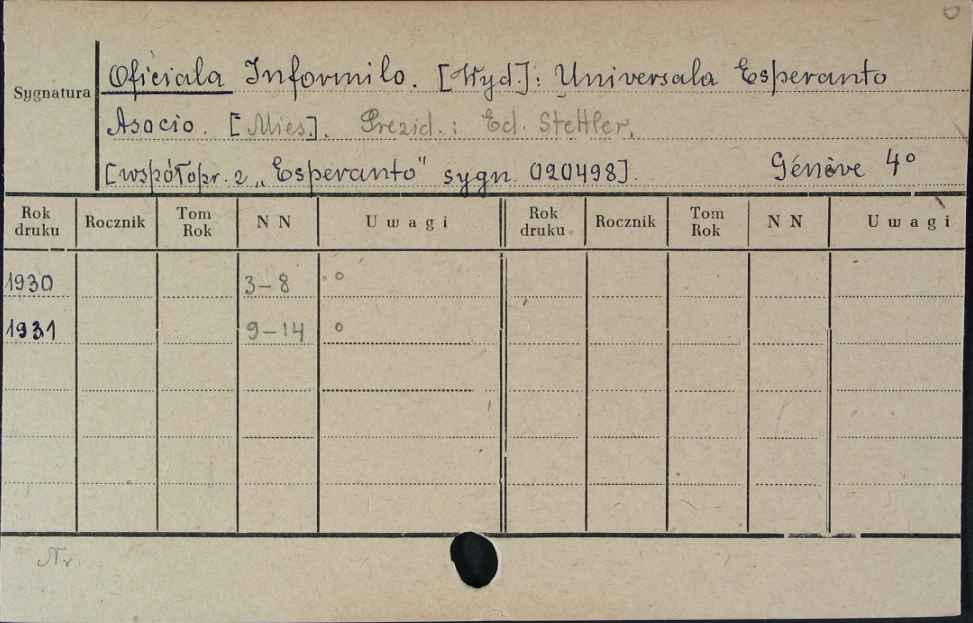 Sygnatura
Oficiala Informilo. [Wyd.]: Universala Esperanto
Asocio. [Mies.]. Prezid.: Ed. Stettler.
[współopr. z „Esperanto" sygn. 020498]. Génève 4°
Rok druku Rocznik Tom Rok N N Uwagi Rok druku Rocznik Tom Rok N N Uwagi
1930 3-8 °
1931 9-14 °
Nr.